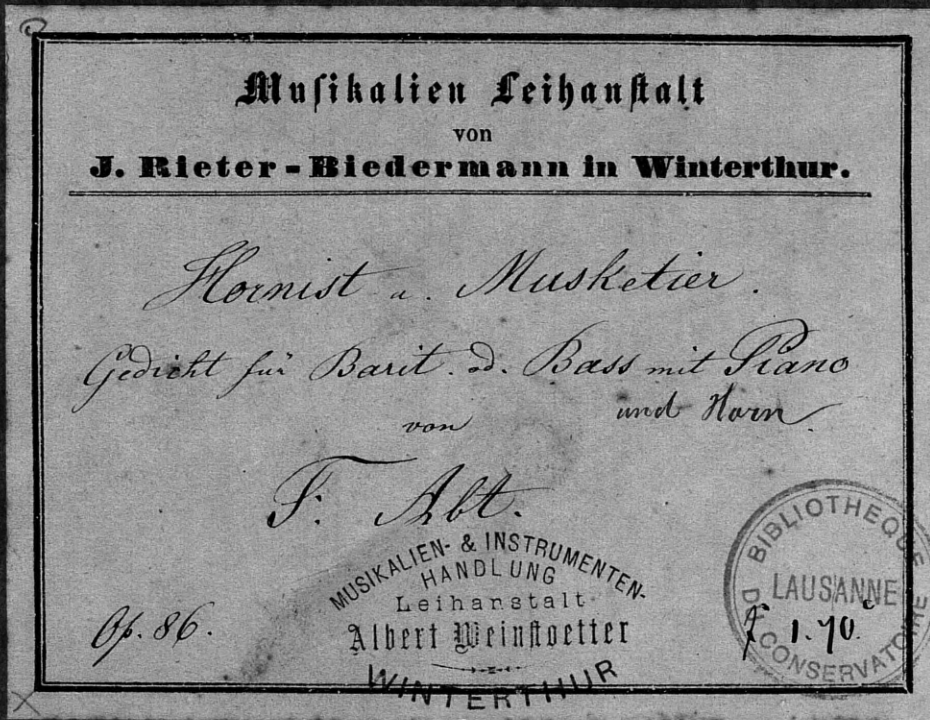 Musikalien Leihanstalt
von
J. Rieter-Biedermann in Winterthur.
Hornist u. Musketier.
Gedicht für Barit. od. Bass mit Piano
und Horn.
von
F. Abt.
Op. 86.
MUSIKALIEN- & INSTRUMENTEN-
HANDLUNG
Leihanstalt
Albert Weinstoetter
WINTERTHUR
BIBLIOTHEQUE
LAUSANNE
DU CONSERVATOIRE
f 1.70.c